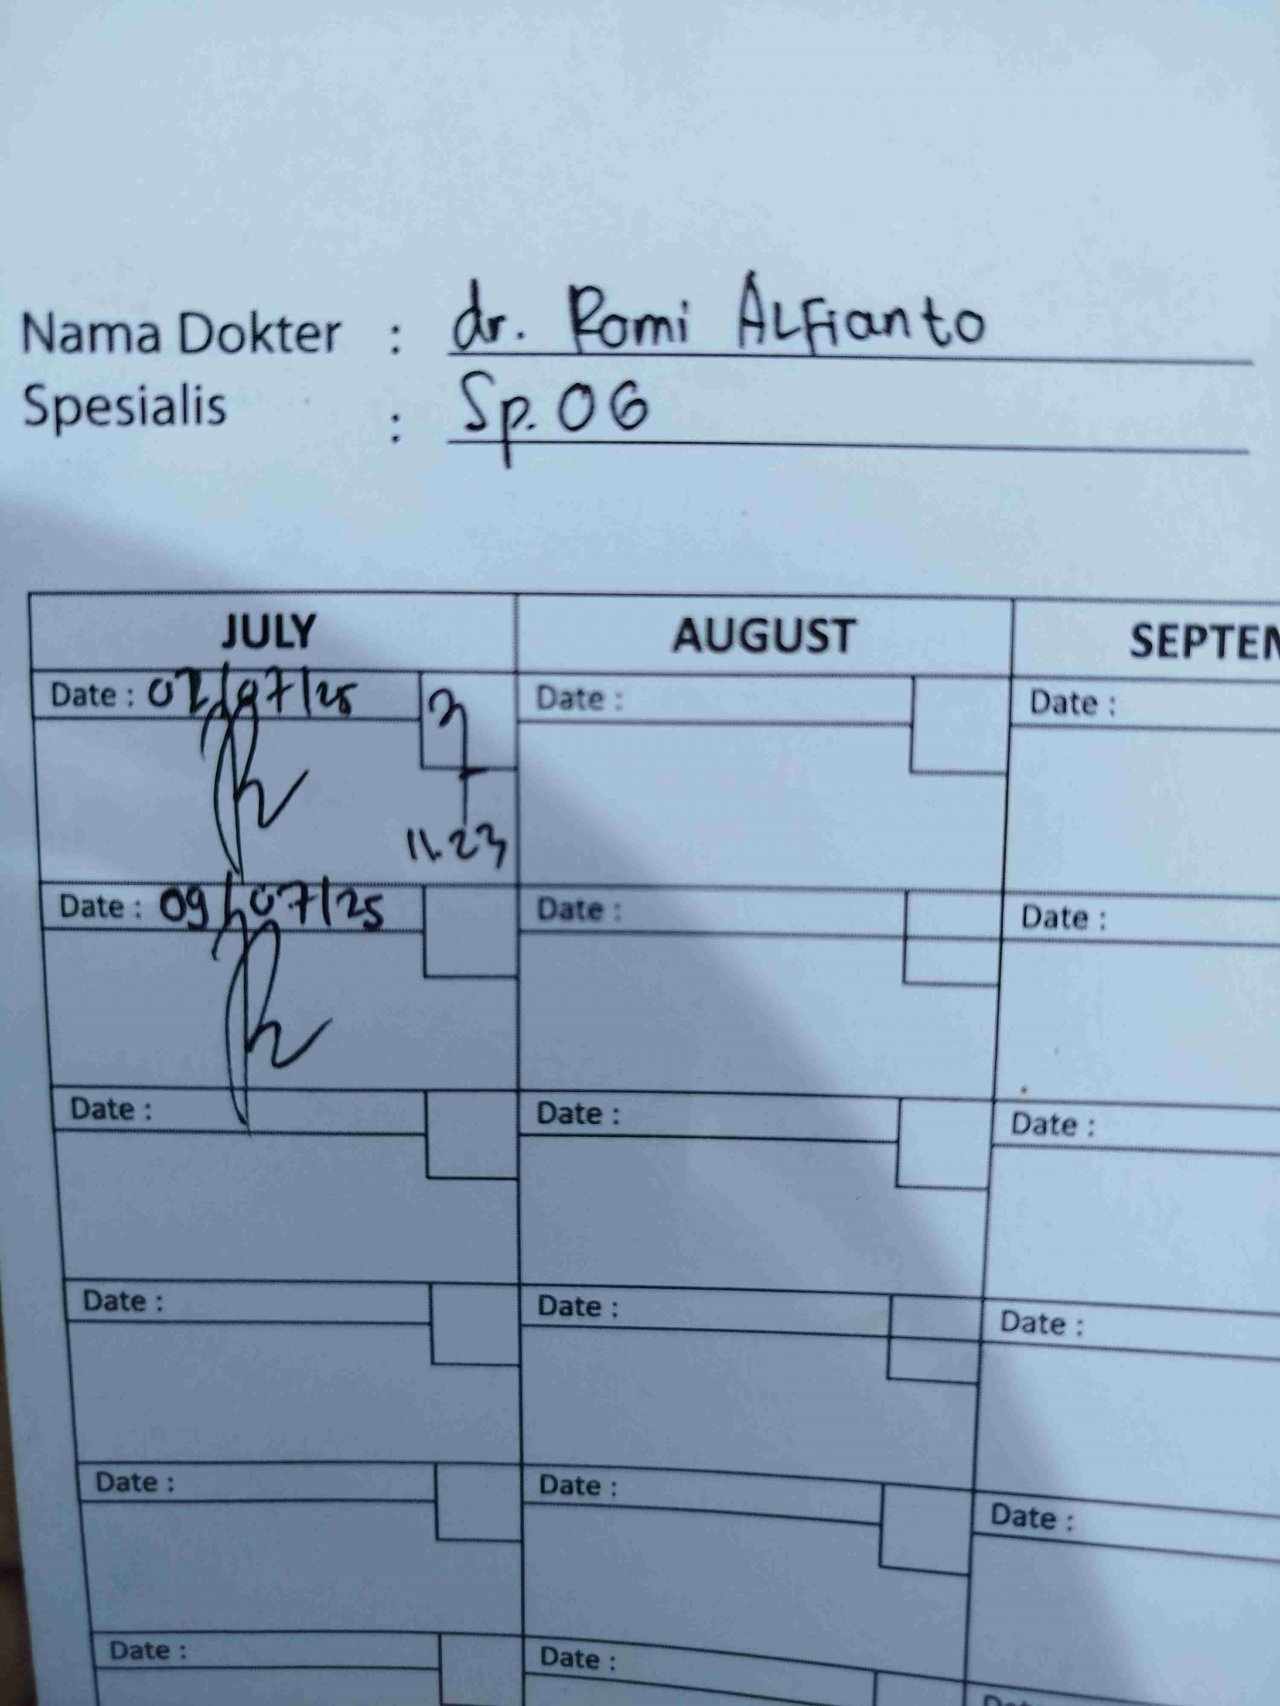 Nama Dokter : dr. Romi Alfianto
Spesialis : Sp. OG
JULY AUGUST SEPTEN
Date : 02/07/25 Date : Date :
11.23
Date : 09/07/25 Date : Date :
Date : Date : Date :
Date : Date : Date :
Date : Date : Date :
Date : Date :